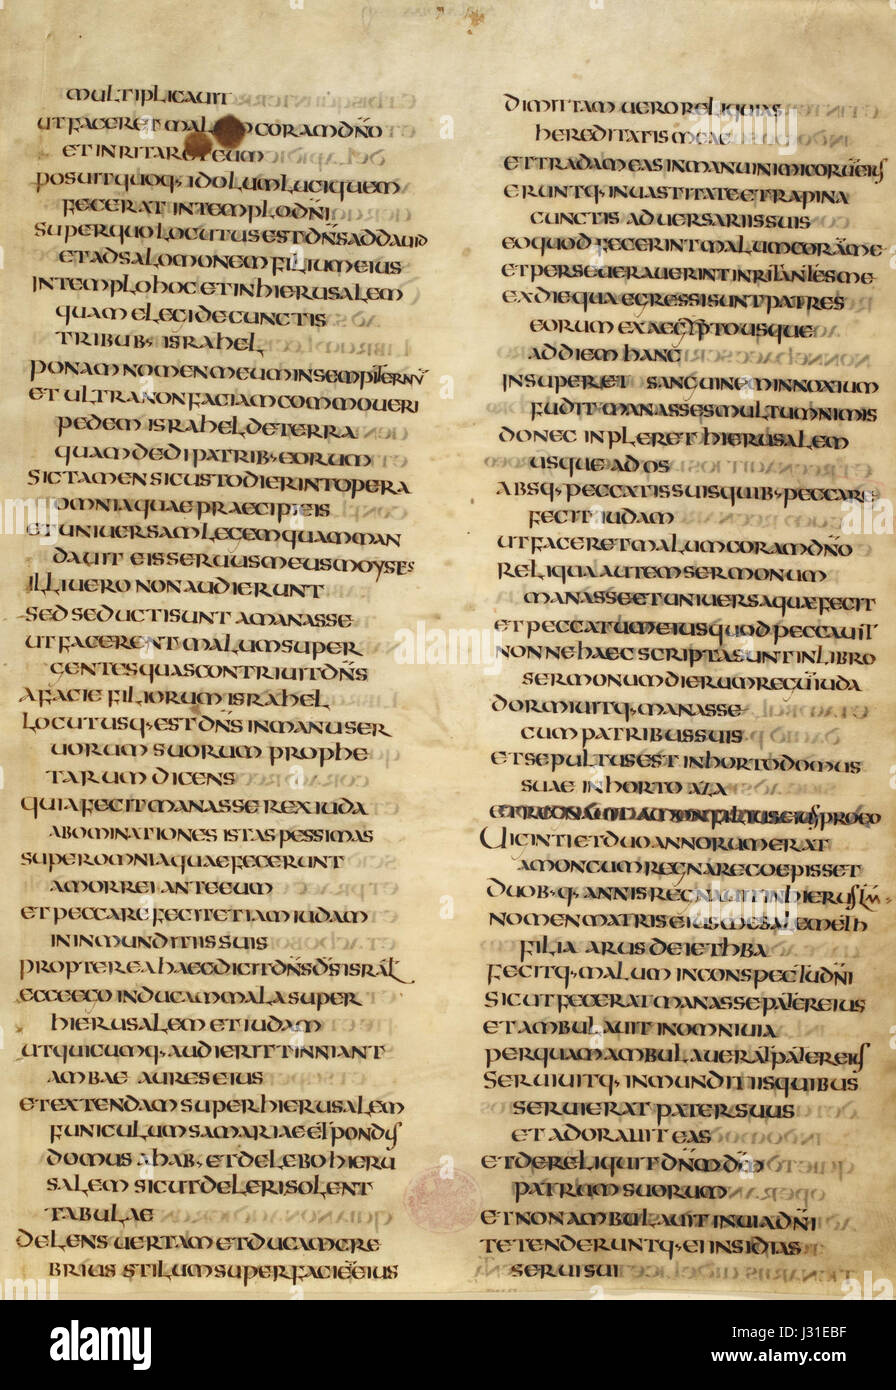 multiplicauit
ut faceret malum coram dño
et inritaret eum
posuit quoq; idolum luci quem
fecerat in templo dñi
super quo locutus est dñs ad dauid
et ad salomonem filium eius
in templo hoc et in hierusalem
quam elegi de cunctis
tribub; israhel
ponam nomen meum in sempiternũ
et ultra non faciam commoueri
pedem israhel de terra
quam dedi patrib; eorum
sic tamen si custodierint opera
omnia quae praecipi eis
et uniuersam legem quam man
dauit eis seruus meus moyses
illi uero non audierunt
sed seducti sunt a manasse
ut facerent malum super
gentes quas contriuit dñs
a facie filiorum israhel
locutusq; est dñs in manu ser
uorum suorum prophe
tarum dicens
quia fecit manasse rex iuda
abominationes istas pessimas
super omnia quae fecerunt
amorrei ante eum
et peccare fecit etiam iudam
in inmunditiis suis
propterea haec dicit dñs dš israhl
ecce ego inducam mala super
hierusalem et iudam
ut quicumq; audierit tinniant
ambae aures eius
et extendam super hierusalem
funiculum samariae et pondus
domus ahab; et delebo hieru
salem sicut deleri solent
tabulae
delens uertam et ducam cre
brius stilum super faciẽ eius
dimittam uero reliquias
hereditatis meae
et tradam eas in manu inimicorũ eius
eruntq; in uastitate et rapina
cunctis aduersariis suis
eo quod fecerint malum corã me
et perseuerauerint inritantes me
ex die qua egressi sunt patres
eorum ex aegypto usque
ad diem hanc
insuper et sanguinem innoxium
fudit manasses multum nimis
donec inpleret hierusalem
usque ad os
absq; peccatis suis quib; peccare
fecit iudam
ut faceret malum coram dño
reliqua autem sermonum
manasse et uniuersa quae fecit
et peccatum eius quod peccauit
nonne haec scripta sunt in libro
sermonum dierum regũ iuda
dormiuitq; manasse
cum patribus suis
et sepultus est in horto domus
suae in horto aza
et regnauit amon filius eius pro eo
Uiginti et duo annorum erat
amon cum regnare coepisset
duob; q; annis regnauit in hieruslm̃
nomen matris eius mesalemeth
filia arus de iethba
fecitq; malum in conspectu dñi
sicut fecerat manasse pater eius
et ambulauit in omni uia
per quam ambulauerat pater eius
seruiuitq; inmunditiis quibus
seruierat pater suus
et adorauit eas
et dereliquit dñm dm̃
patrum suorum
et non ambulauit in uia dñi
tetenderuntq; ei insidias
serui sui
alamy
Image ID: J31EBF
www.alamy.com